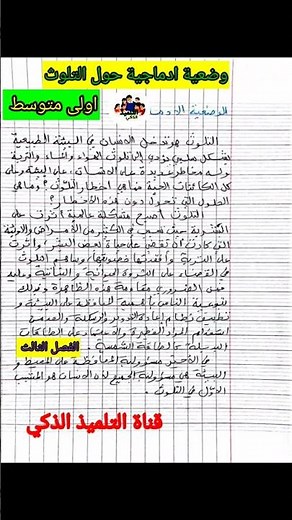 وضعية ادماجية حول التلوث
اولى متوسط
الوضعية الادما
التلوث هو تدخل الانسان في البيئة الطبيعية
بشكل سلبي يؤدي إلى تلوث الهواء والماء والتربة
وله مخاطر عديدة على الانسان، على البيئة وعلى
كل الكائنات الحية فما هي أخطار التلوث؟ وما هي
الحلول التي تحول دون هذه الأخطار؟
التلوث أصبح مشكلة عالمية أثرت على
البشرية حيث تسبب في الكثير من الأمراض والأوبئة
التي كادت أن تقضي على حياة بعض البشر، وأثرت
على التربة وأفقدتها خصوبتها، وساهم التلوث
في القضاء على الثروة الحيوانية والنباتية وعليه
فمن الضروري مقاومة هذه الظاهرة وذلك
بتوعية الناس بأهمية المحافظة على البيئة و
تطبيق نظام إعادة التدوير والرسكلة و
استخدام المواد الخطيرة والاعتماد على الطاقات
البديلة كالطاقة الشمسية.
الفصل الثالث
في الأخير مسؤولية المحافظة على المحيط و
البيئة هي مسؤولية الجميع لأن الانسان هو المتسبب
الأول في التلوث.
قناة التلميذ الذكي